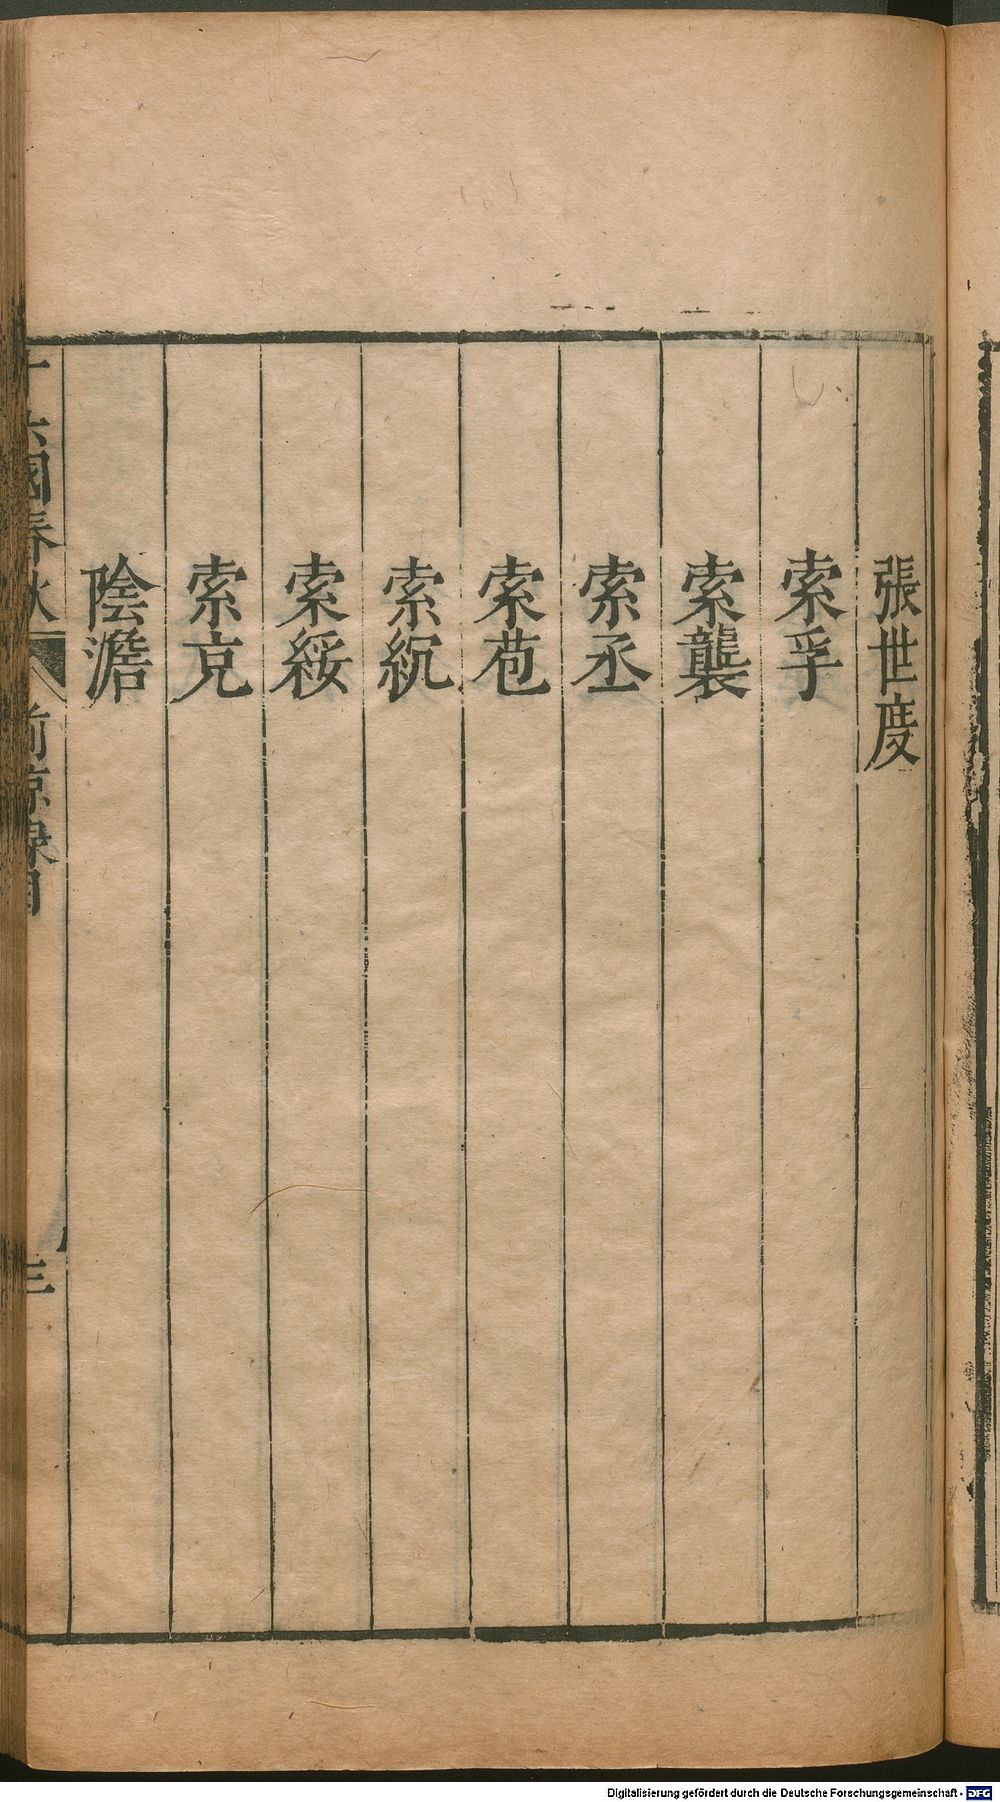 張世度
索孚
索襲
索丞
索苞
索紞
索綏
索克
陰澹
十六國春秋 前涼録目 三
Digitalisierung gefördert durch die Deutsche Forschungsgemeinschaft - DFG